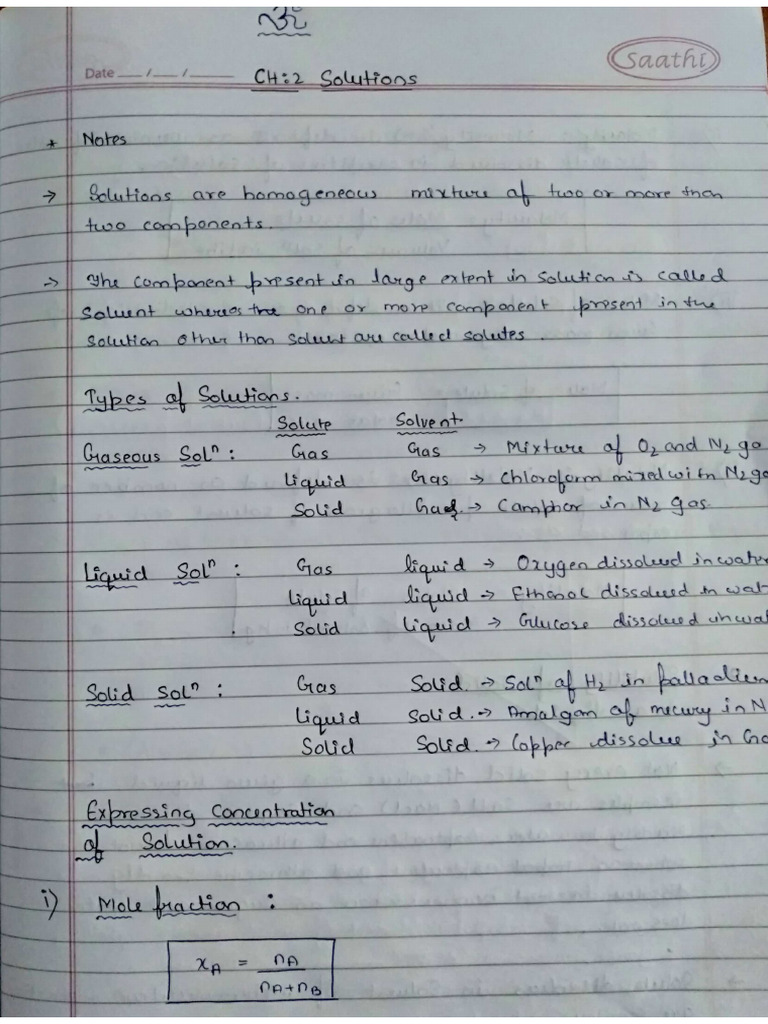 ૐ
Saathi
Date __/__/____ CH:2 Solutions
* Notes
→ Solutions are homogeneous mixture of two or more than
two components.
→ The component present in large extent in solution is called
Solvent whereas the one or more component present in the
solution other than solvent are called solutes.
Types of Solutions.
Solute Solvent
Gaseous Solⁿ : Gas Gas → Mixture of O₂ and N₂ ga
Liquid Gas → Chloroform mixed with N₂ ga
Solid Gas → Camphor in N₂ gas
Liquid Solⁿ : Gas liquid → Oxygen dissolved in water
liquid liquid → Ethanol dissolved in wat
Solid liquid → Glucose dissolved in wat
Solid Solⁿ : Gas Solid. → Solⁿ of H₂ in palladium
liquid Solid. → Amalgam of mercury in N
Solid Solid. → Copper dissolve in Go
Expressing Concentration
of Solution.
i) Mole fraction :
x_A = n_A / n_A + n_B